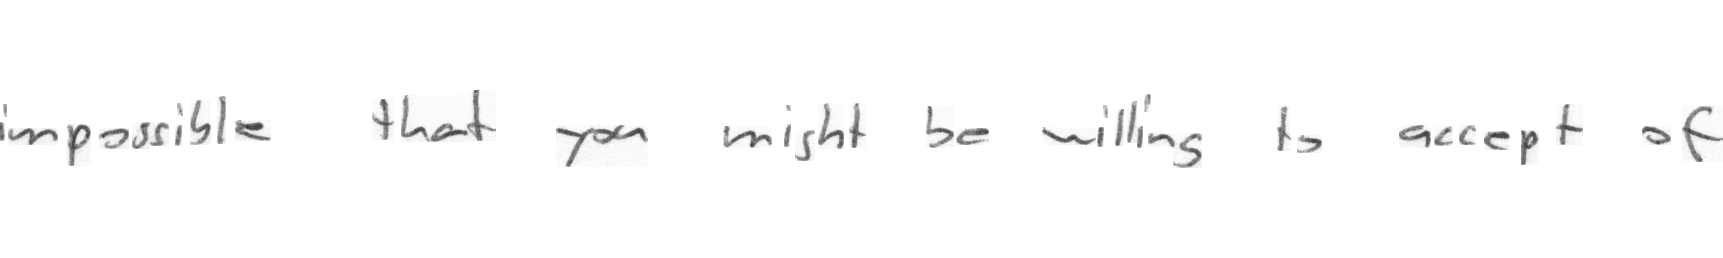 impossible that you might be willing to accept of